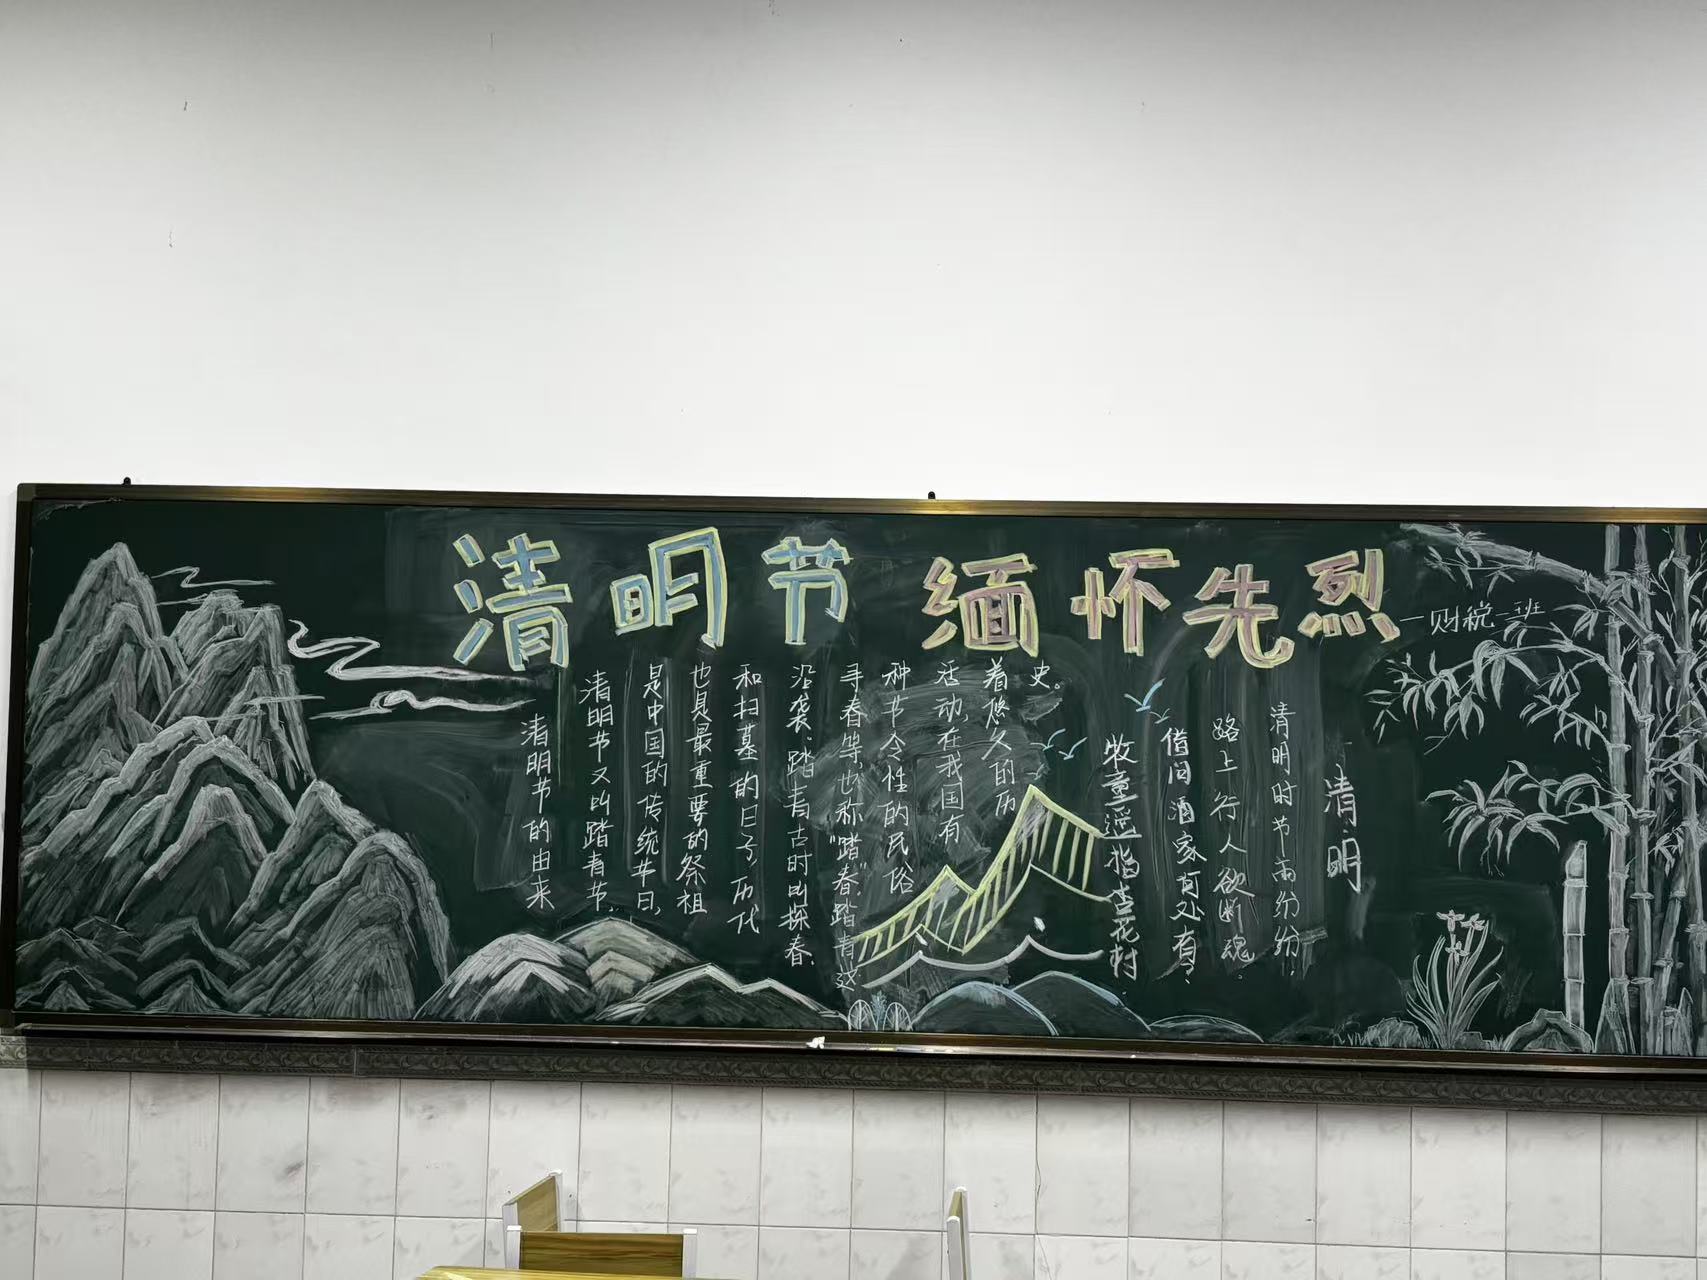 清明节 缅怀先烈
一财税一班
清明节的由来
清明节又叫踏青节,
是中国的传统节日,
也是最重要的祭祖
和扫墓的日子,历代
沿袭。踏青古时叫探春、
寻春等也称“踏”春、踏青这
种节令性的民俗
活动,在我国有
着悠久的历
史。
清明
清明时节雨纷纷,
路上行人欲断魂。
借问酒家何处有,
牧童遥指杏花村